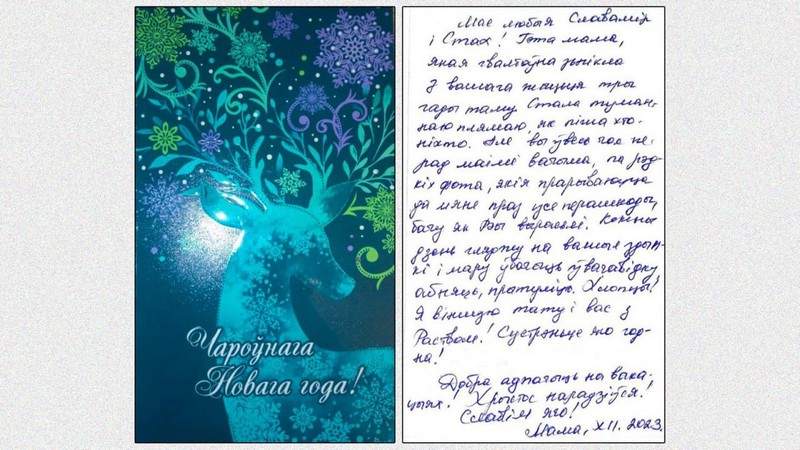 Чароўнага
Новага года!
Мае любыя Славамір
і Стах! Гэта мама,
якая гвалтоўна знікла
з вашага жыцця тры
гады таму. Стала туман-
наю плямаю, як піша хто-
ніхто. Але вы ўвесь час пе-
рад маімі вачыма, па рэд-
кіх фота, якія прарываюцца
да мяне праз усе перашкоды,
бачу як Вы выраслі. Кожны
дзень гляджу на вашыя здым-
кі і мару ўбачыць ўвачавідкі,
абняць, прытуліць. Хлопцы!
Я віншую тату і вас з
Раством! Сустрэньце яго год-
на!
Добра адпачыць на выка-
цыях! Хрыстос нарадзіўся!
Славім яго!
Мама, XII. 2023.